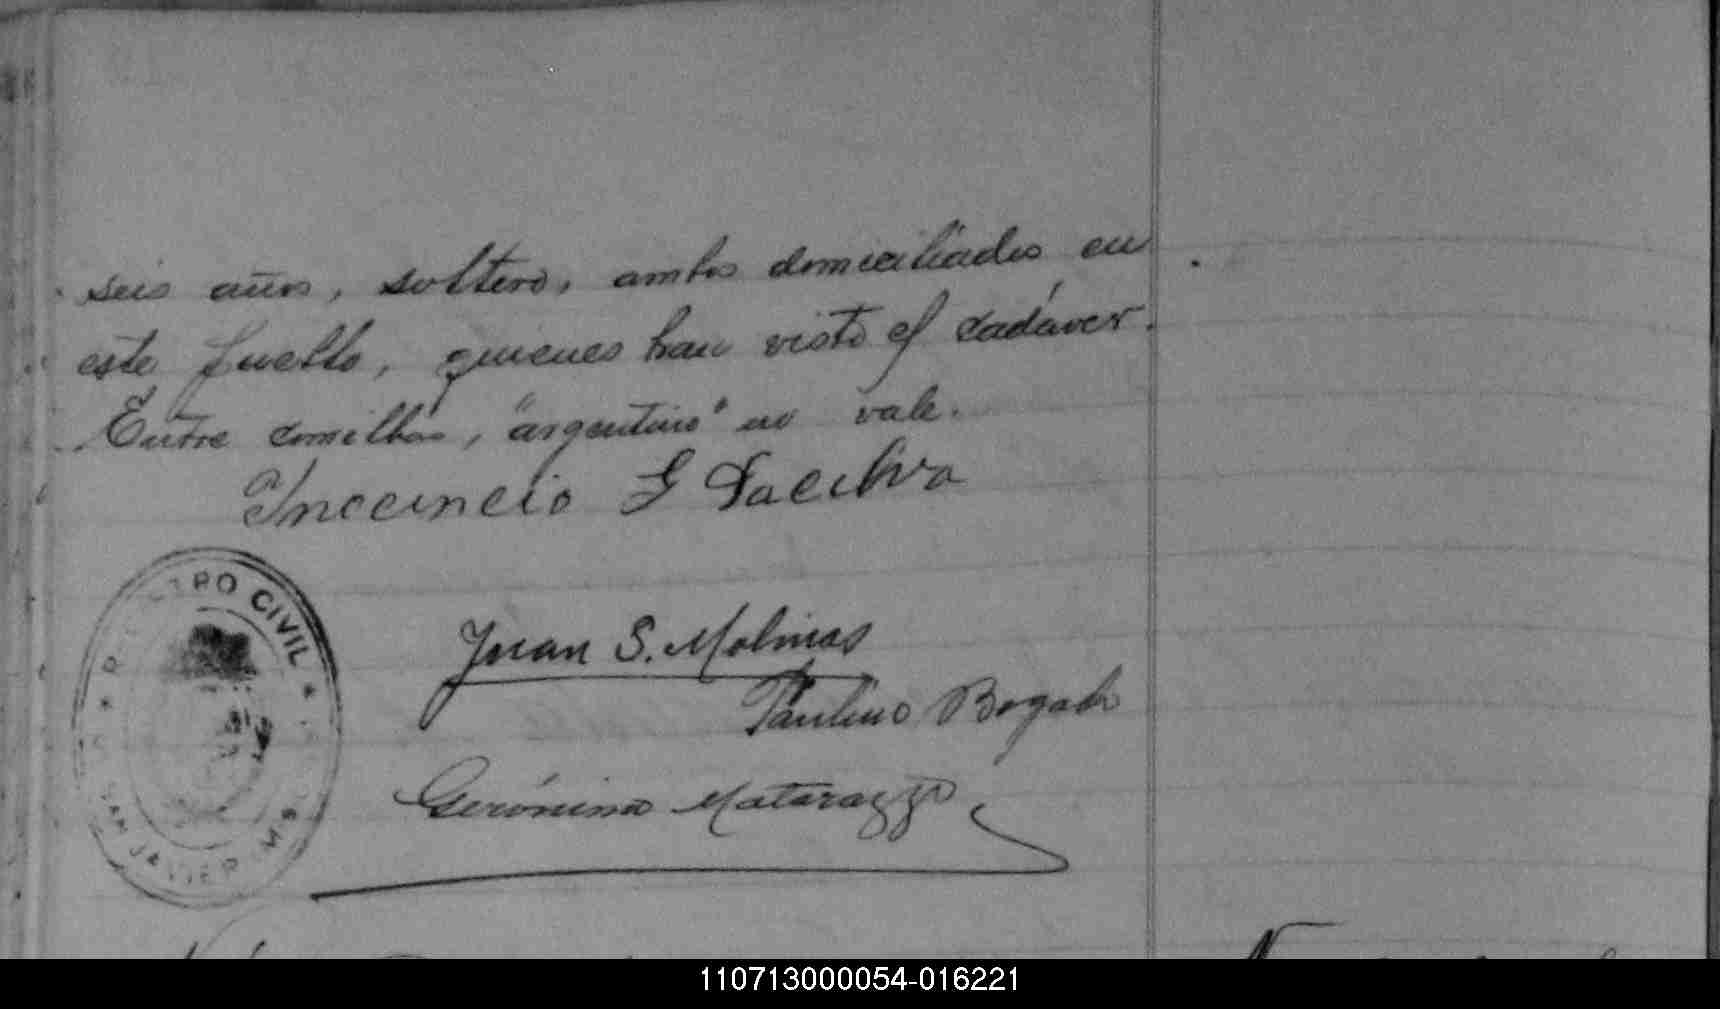 seis años, soltero, ambos domiciliados en
este pueblo, quienes han visto el cadáver.
Entre comillas, "argentino" no vale.
Inocencio G Dacilva
REGISTRO CIVIL
Juan S. Molinas
Paulino Bogado
Gerónimo Matarazzo
SAN JAVIER MS
110713000054-016221